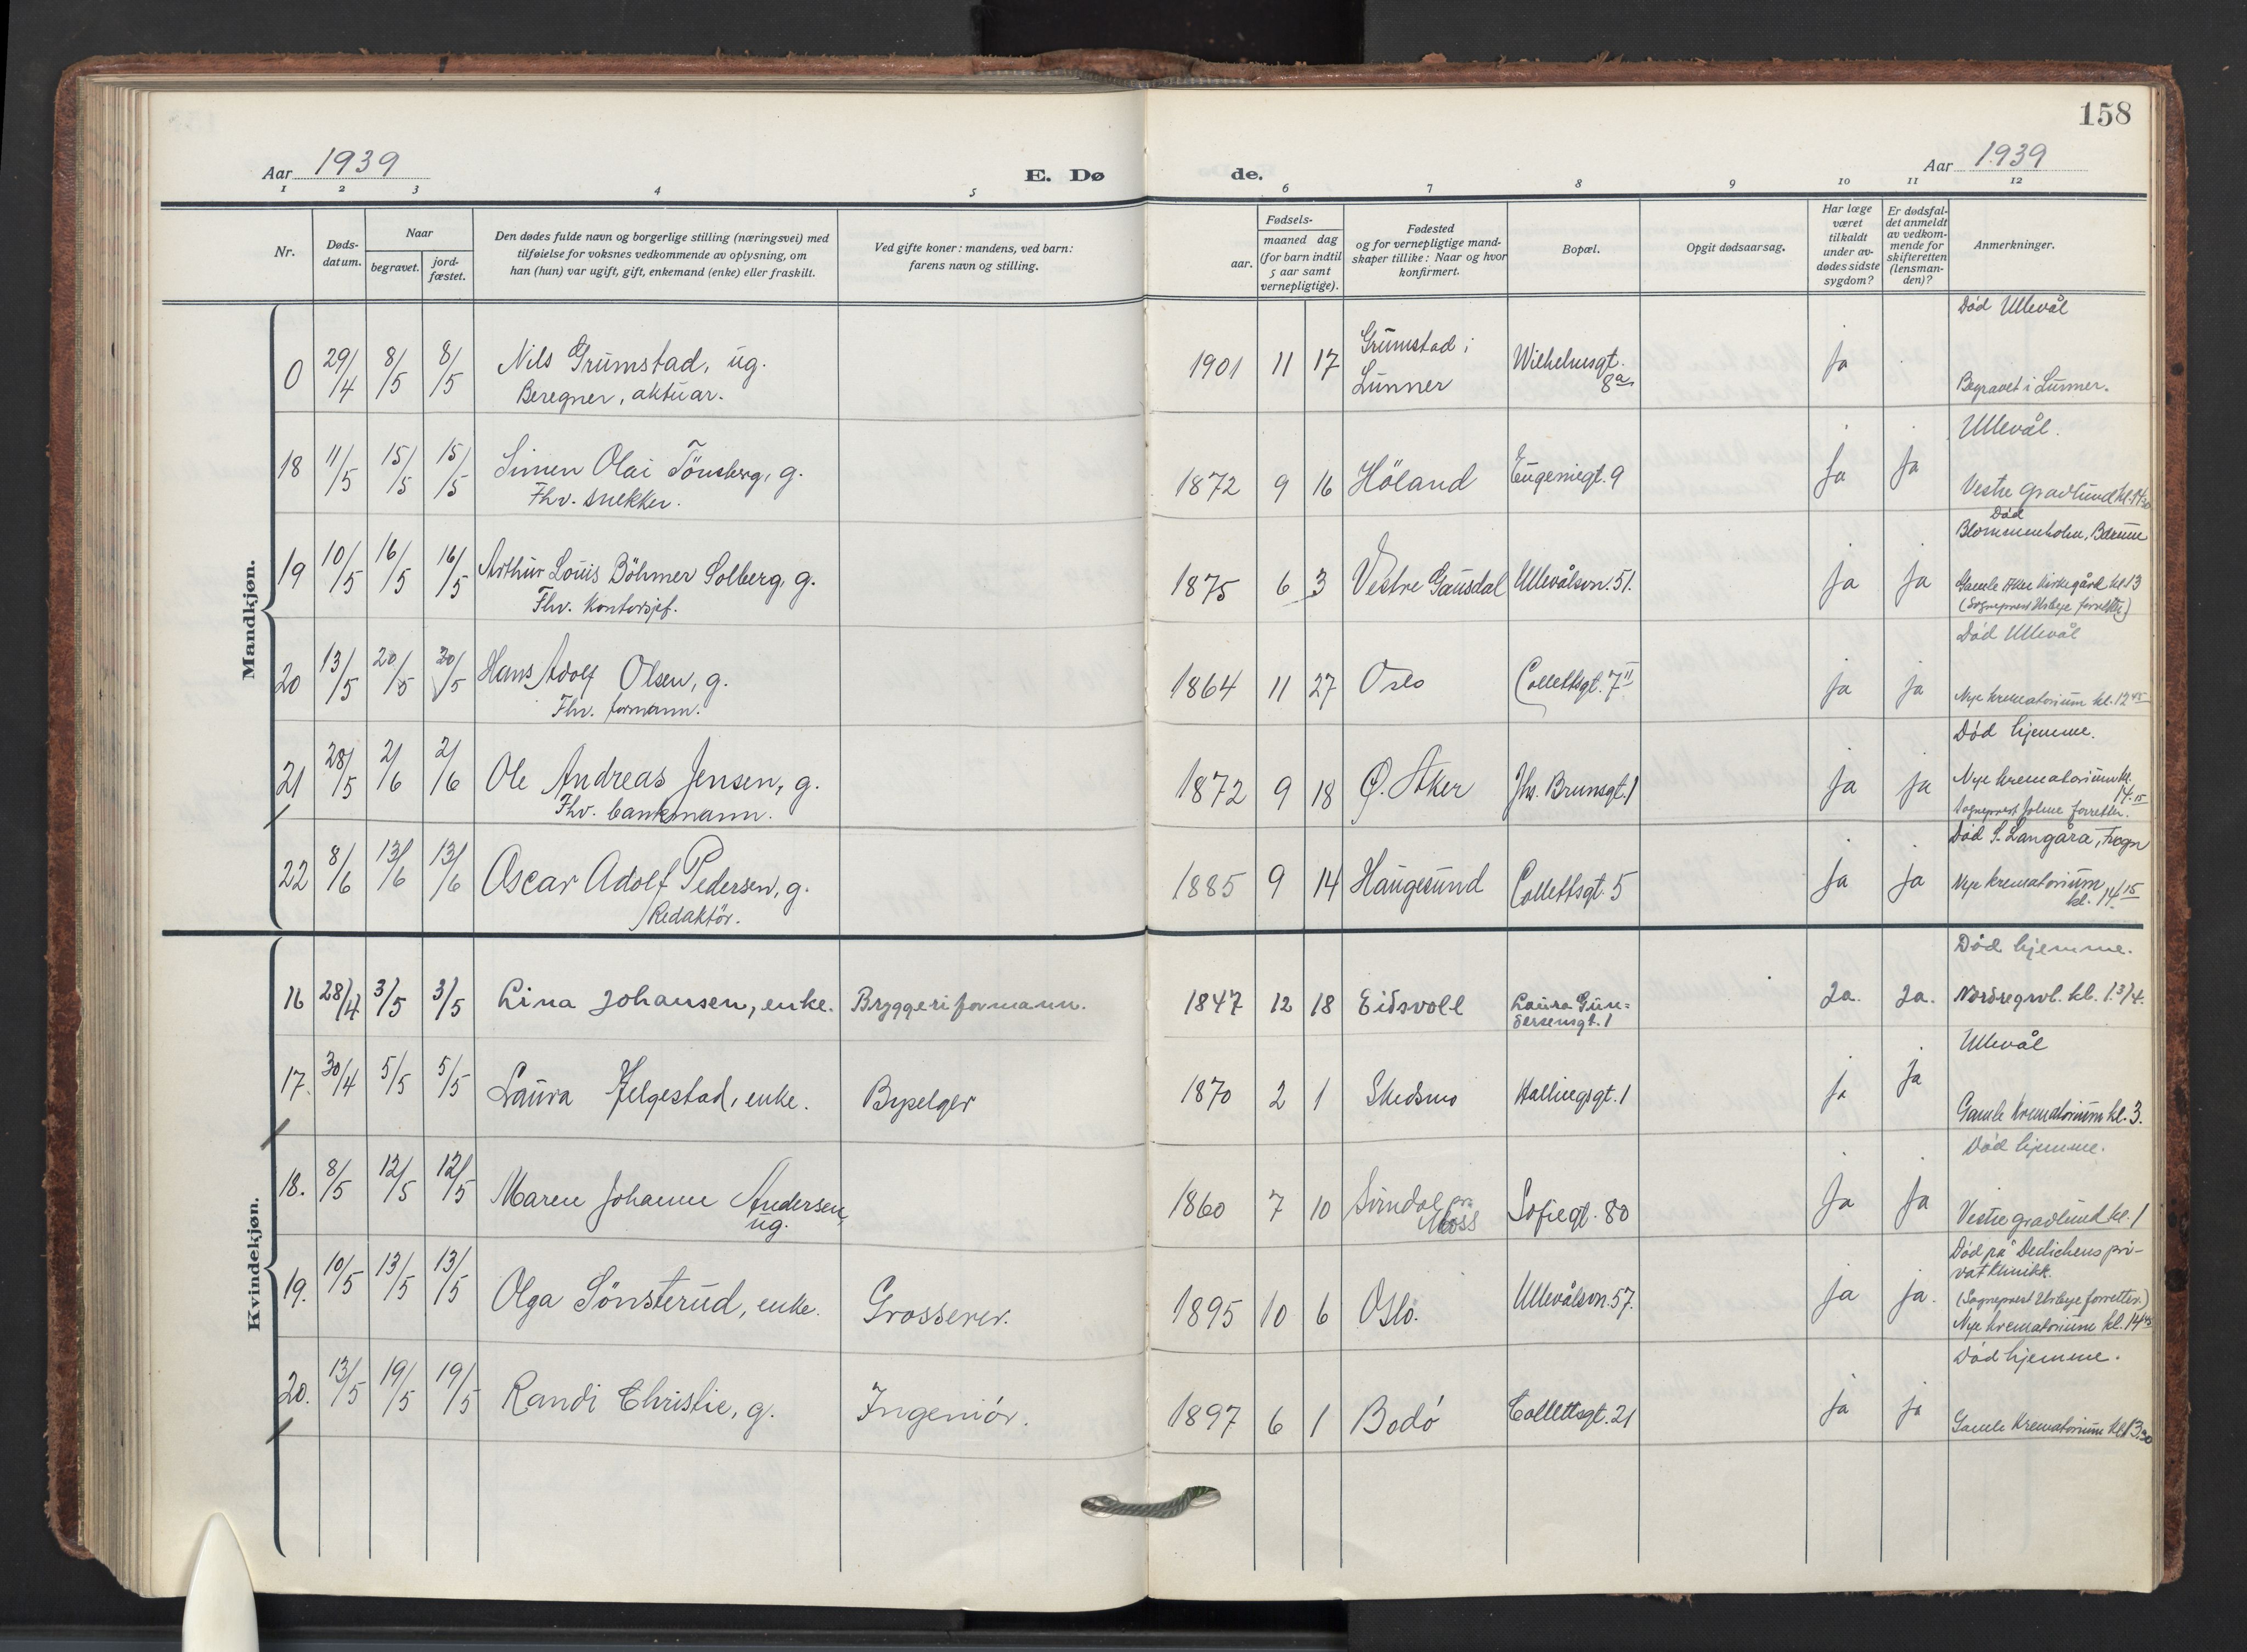 158
Aar 1939
E. Dø
de.
Aar 1939
1 2 3 4 5 6 7 8 9 10 11 12
Nr.
Døds-
datum.
Naar
begravet.
jord-
fæstet.
Den dødes fulde navn og borgerlige stilling (næringsvei) med
tilføielse for voksnes vedkommende av oplysning, om
han (hun) var ugift, gift, enkemand (enke) eller fraskilt.
Ved gifte koner: mandens, ved barn:
farens navn og stilling.
Fødsels-
aar.
maaned dag
(for barn indtil
5 aar samt
vernepligtige).
Fødested
og for vernepligtige mand-
skaper tillike: Naar og hvor
konfirmert.
Bopæl.
Opgit dødsaarsag.
Har læge
været
tilkaldt
under av-
dødes sidste
sygdom?
Er dødsfal-
det anmeldt
av vedkom-
mende for
skifteretten
(lensman-
den)?
Anmerkninger.
Mandkjøn.
0 29/4 8/5 8/5 Nils Grumstad, ug.
Beregner, aktuar.
1901 11 17
Grumstad i
Lunner
Wilhelmsgt.
8a
ja
Død Ullevål
Begravet i Lunner.
18 11/5 15/5 15/5 Simen Olai Tönsberg, g.
Fhv. snekker.
1872 9 16 Höland Eugeniegt. 9 ja ja
Ullevål.
Vestre gravlund kl. 14.30
19 10/5 16/5 16/5 Arthur Louis Böhmer Solberg, g.
Fhv. kontorsjef.
1875 6 3 Vestre Gausdal Ullevålsvn. 51. ja ja
Død
Blommenholm, Bærum
Gamle Aker kirkegård kl. 13
(Sogneprest Urbye forretter)
20 13/5 20/5 20/5 Hans Adolf Olsen, g.
Fhv. formann.
1864 11 27 Oslo Collettsgt. 7 II ja ja
Død Ullevål
Nye krematorium kl. 12 45
21 28/5 2/6 2/6 Ole Andreas Jensen, g.
Fhv. bankmann.
1872 9 18 Ø. Aker Jhs. Brunsgt. 1 ja ja
Død hjemme.
Nye krematorium kl.
14.15
Sogneprest forretter.
22 8/6 13/6 13/6 Oscar Adolf Pedersen, g.
Redaktör.
1885 9 14 Haugesund Collettsgt. 5 ja ja
Død S. Langåra, Frogn
Nye krematorium
kl. 14 15
Kvindekjøn.
16 28/4 3/5 3/5 Lina Johansen, enke. Bryggeriformann.
1847 12 18 Eidsvoll
Laura Gun=
dersensgt. 1
Ja. Ja.
Død hjemme.
Nordregrvl. kl. 1.3/4.
17. 30/4 5/5 5/5 Laura Helgestad, enke. Bypelger
1870 2 1 Skedsmo Wallinegsgt. 1 ja ja
Ullevål
Gamle krematorium kl. 3.
18. 8/5 12/5 12/5 Maren Johanne Andersen,
ug.
1860 7 10 Moss Sofiegt. 80 ja ja
Død hjemme.
Vestre gravlund kl. 1
19. 10/5 13/5 13/5 Olga Sönsterud, enke. Grosserer.
1895 10 6 Oslo. Ullevålsvn. 57. ja ja.
Død på Dedichens pri-
vatklinikk.
(Sogneprest Urbye forretter.)
Nye krematorium kl. 14 45
20. 13/5 19/5 19/5 Randi Christie, g. Ingeniör.
1897 6 1 Bodó Collettsgt. 21 ja ja
Død hjemme.
Gamle krematorium kl. 13.30